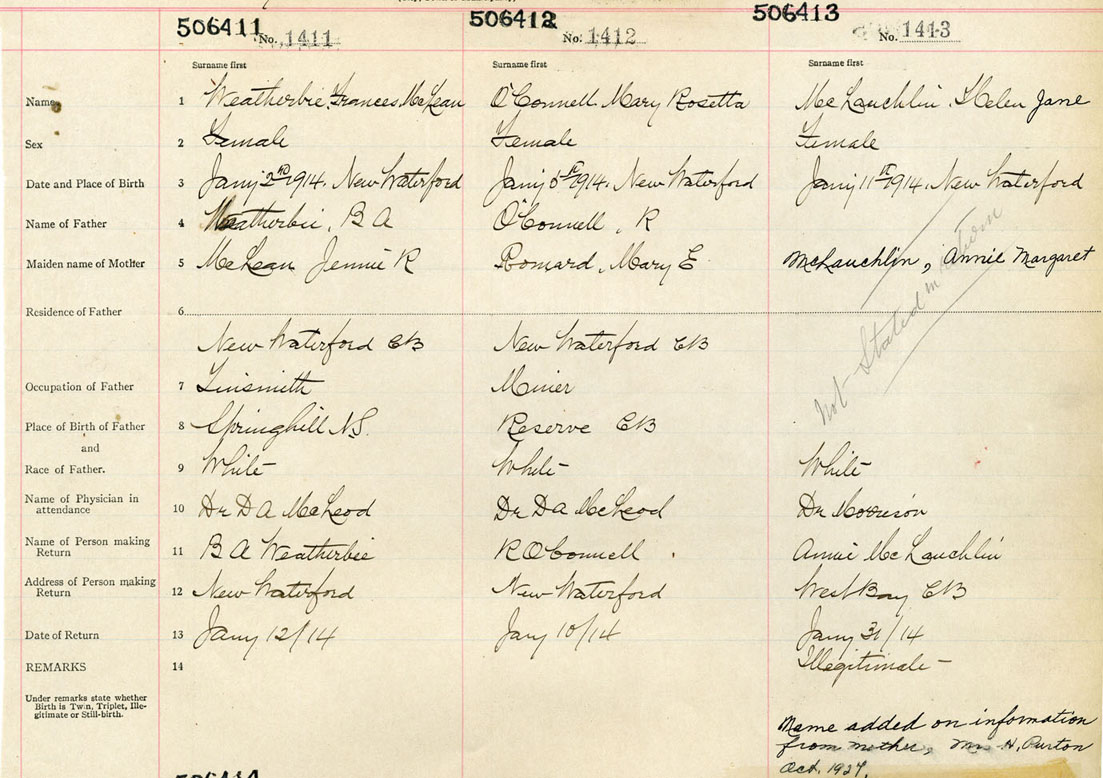 506411 No. 1411 506412 No. 1412 506413 No. 1413
Surname first Surname first Surname first
Name 1 Weatherbie, Frances McLean O'Connell, Mary Rosetta McLauchlin, Helen Jane
Sex 2 Female Female Female
Date and Place of Birth 3 Jany 2nd 1914. New Waterford Jany 5th 1914. New Waterford Jany 11th 1914. New Waterford
Name of Father 4 Weatherbie, B A O'Connell, R
Maiden name of Mother 5 McLean Jennie R Romard, Mary E McLauchlin, Annie Margaret
Residence of Father 6
Not Stated in form
New Waterford CB New Waterford CB
Occupation of Father 7 Tinsmith Miner
Place of Birth of Father 8 Springhill N.S. Reserve CB
and
Race of Father. 9 White White White
Name of Physician in
attendance 10 Dr D A McLeod Dr D A McLeod Dr Morrison
Name of Person making
Return 11 B A Weatherbie R O'Connell Annie McLauchlin
Address of Person making
Return 12 New Waterford New Waterford West Bay CB
Date of Return 13 Jany 12/14 Jany 10/14 Jany 31/14
REMARKS 14 Illegitimate
Under remarks state whether
Birth is Twin, Triplet, Ille-
gitimate or Still-birth.
Name added on information
from mother, Mrs H. Purton
Oct. 1927.